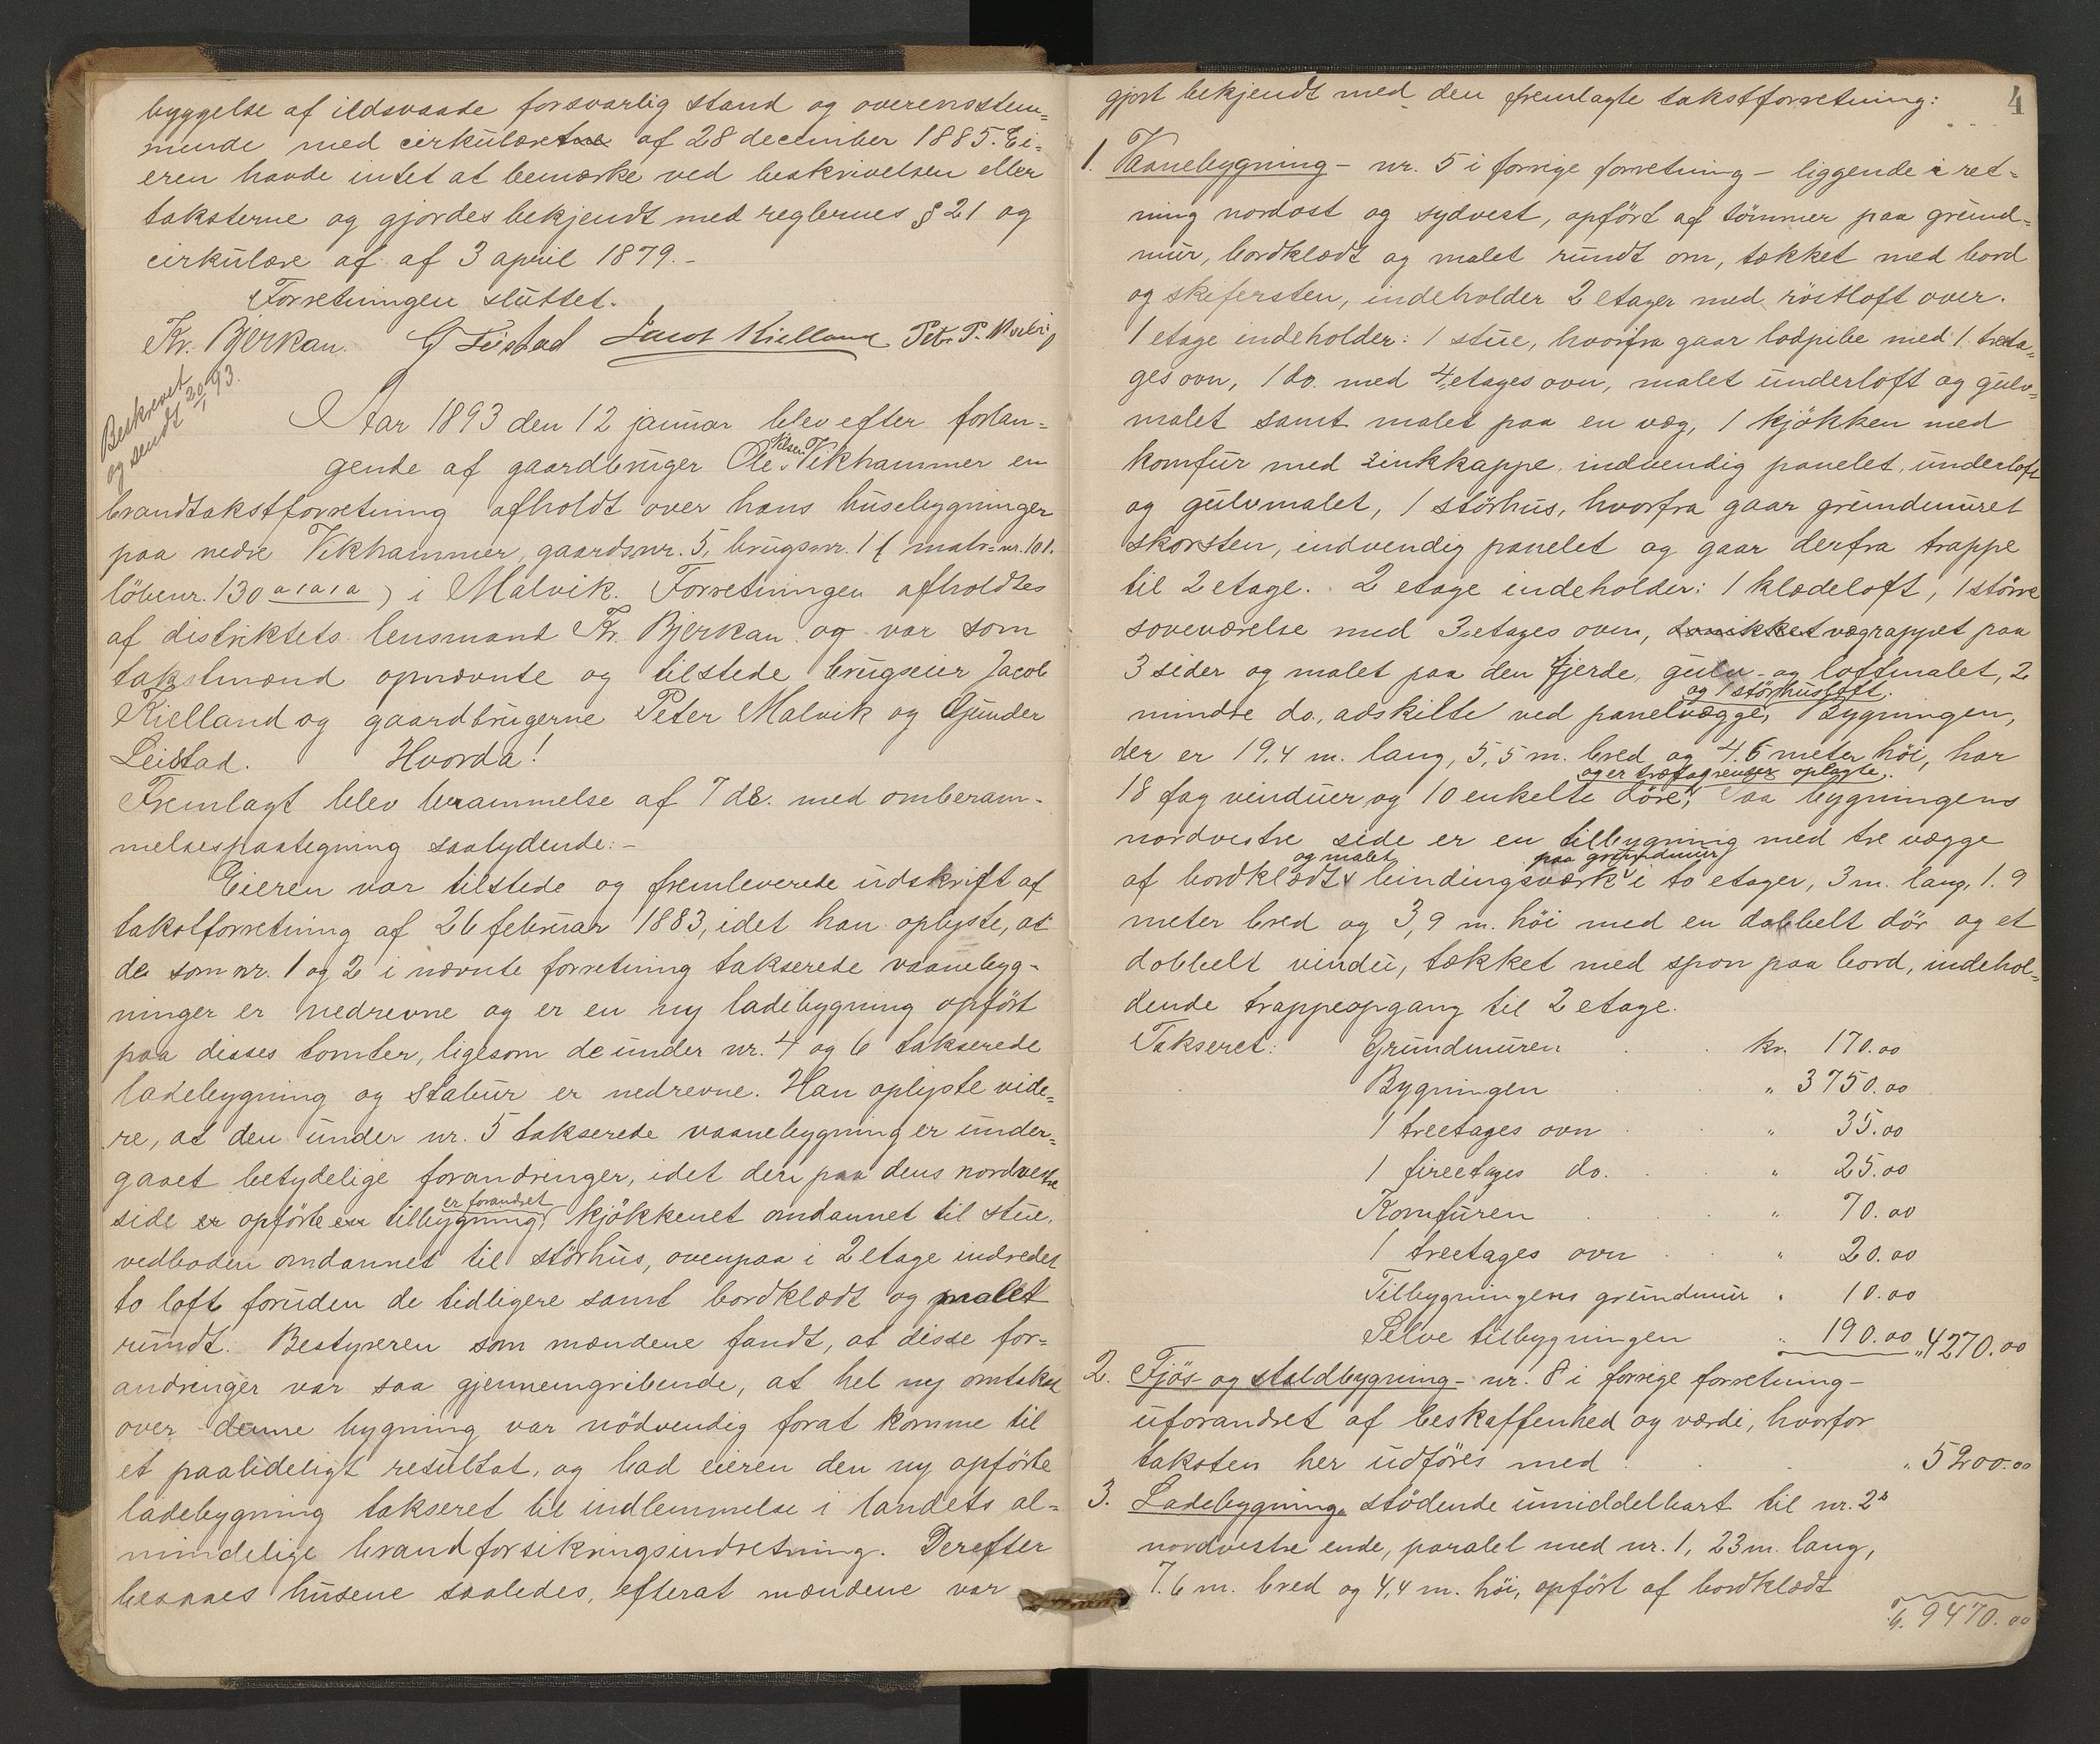 byggelse af ildsvaade forsvarlig stand og overensstem=
mende med cirkulæretne af 28 december 1885. Ei=
eren havde intet at bemærke ved beskrivelsen eller
taksterne og gjordes bekjendt med reglernes § 21 og
cirkulære af af 3 april 1879.-
Forretningen sluttet.
Kr. Bjerkan. G Leistad Jacob Kielland Peter P. Malvig
Beskrevet
og sendt 20/1 93.
Aar 1893 den 12 januar blev efter forlan=
gende af gaardbruger Ole Vikhammer en
brandtakstforretning afholdt over hans husebygninger
paa nedre Vikhammer, gaards-nr. 5, brugs-nr. 1 ( matr=nr. 101.
löbenr. 130 a, a, a ) i Malvik. Forretningen afholdtes
af distriktets lensmand Kr. Bjerkan og var som
takstmænd opnævnte og tilstede brugseier Jacob
Kielland og gaardbrugerne Peter Malvik og Gunder
Leistad. Hvorda!
Fremlagt blev berammelse af 7 ds. med omberam-
melsespaategning saalydende:-
Eieren var tilstede og fremleverede udskrift af
takstforretning af 26 februar 1883, idet han oplyste, at
de som nr. 1 og 2 i nævnte forretning takserede vaanebyg-
ninger er nedrevne og er en ny ladebygning opfört
paa disses tomter, ligesom de under nr. 4 og 6 takserede
ladebygning og stabur er nedrevne. Han oplyste vide=
re, at den under nr. 5 takserede vaanebygning er under=
gaaet betydelige forandringer, idet den paa dens nordvestre
er forandret
side er opförte en tilbygning, kjökkenet omdannet til stue,
vedboden omdannet til störhus, ovenpaa i 2 etage indredet
to loft foruden de tidligere samt bordklædt og malet
rundt. Bestyreren som mændene fandt, at disse for=
andringer var saa gjennemgribende, at hel ny omtakst
over denne bygning var nödvendig forat komme til
et paalideligt resultat, og bad eieren den ny opförte
ladebygning takseret til indlemmelse i landets al=
mindelige brandforsikringsindretning. Derefter
besaaes husene saaledes, efterat mændene var
4
gjort bekjendt med den fremlagte takstforretning:
1. Vaanebygning - nr. 5 i forrige forretning - liggende i ret=
ning nordost og sydvest, opfört af tömmer paa grund=
mur, bordklædt og malet rundt om, tækket med bord
og skifersten, indeholder 2 etager med röstloft over.
1 etage indeholder: 1 stue, hvorfra gaar lodpibe med 1 treeta=
ges ovn, 1 do. med 4 etages ovn, malet underloft og gulv=
malet samt malet paa en væg, 1 kjökken med
komfur med zinkkappe, indvendig panelet, underloft
og gulvmalet, 1 störhus, hvorfra gaar grundmuret
skorsten, indvendig panelet og gaar derfra trappe
til 2 etage. 2 etage indeholder: 1 klædeloft, 1 större
soveværelse med 3 etages oven, vægrappet paa
3 sider og malet paa den fjerde, gulv- og loftmalet, 2
og 1 störhusloft.
mindre do., adskilte ved panelvægge, Bygningen,
der er 19,4 m. lang, 5,5 m. bred og 4,6 meter höi, har
og er trætagrenser oplagte.
18 fag vinduer og 10 enkelte döre, Paa bygningens
nordvestre side er en tilbygning med tre vægge
og malet paa grundmur
af bordklædt bindingsværk i to etager, 3 m. lang, 1.9
meter bred og 3,9 m. höi med en dobbelt dör og et
dobbelt vindu, tækket med spon paa bord, indehol=
dende trappeopgang til 2 etage.
Takseret: Grundmuren kr. 170.00
Bygningen " 3750.00
1 treetages ovn " 35.00
1 fireetages do. " 25.00
Komfuren " 70.00
1 treetages ovn " 20.00
Tilbygningens grundmur " 10.00
Selve tilbygningen " 190.00 " 4270.00
2. Fjös- og staldbygning - nr. 8 i forrige forretning -
uforandret af beskaffenhed og værdi, hvorfor
taksten her udföres med " 5200.00
3. Ladebygning, stödende umiddelbart til nr. 2s
nordvestre ende, paralel med nr. 1, 23 m. lang,
7.6 m. bred og 4,4 m. höi, opfört af bordklædt
T. 9470.00